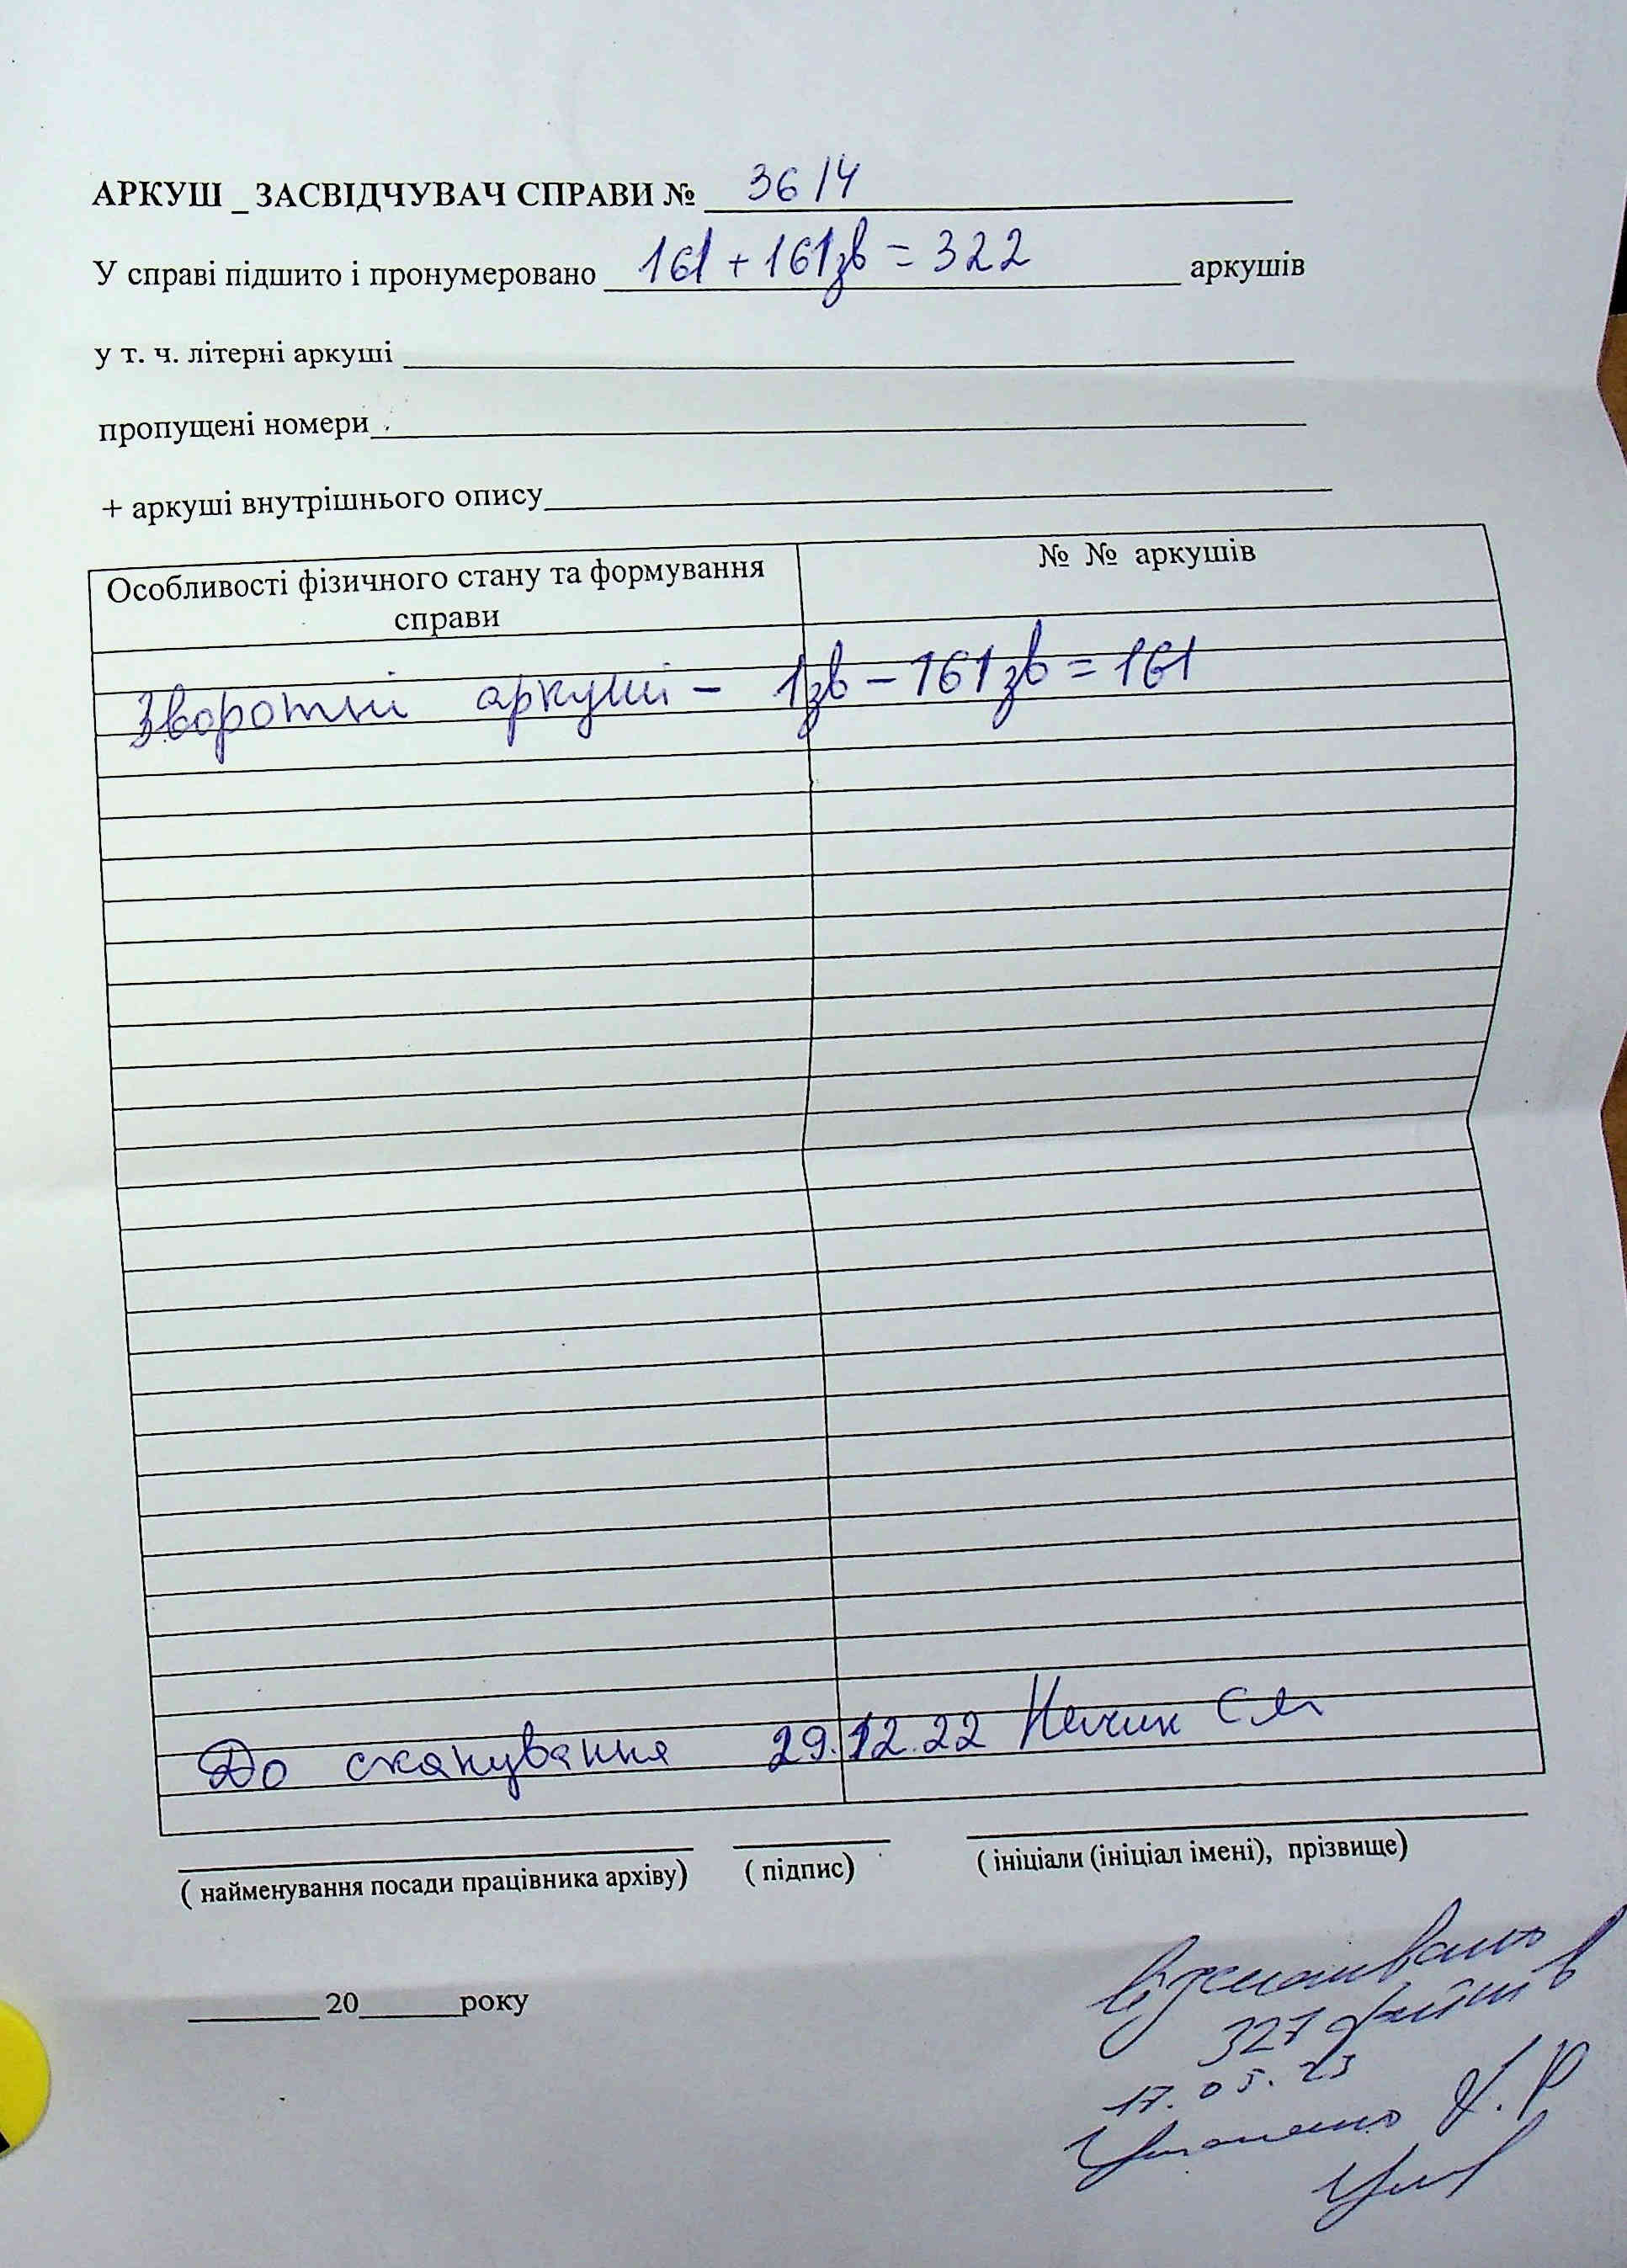 АРКУШ _ ЗАСВІДЧУВАЧ СПРАВИ № 36/4
У справі підшито і пронумеровано 161 + 161зв = 322 аркушів
у т. ч. літерні аркуші
пропущені номери
+ аркуші внутрішнього опису
Особливості фізичного стану та формування справи
№ № аркушів
Зворотні аркуші – 1зв – 161зв = 161
До сканування 29.12.22
( найменування посади працівника архіву) ( підпис) ( ініціали (ініціал імені), прізвище)
20 року
Відскановано
327 файлів
17.05.23